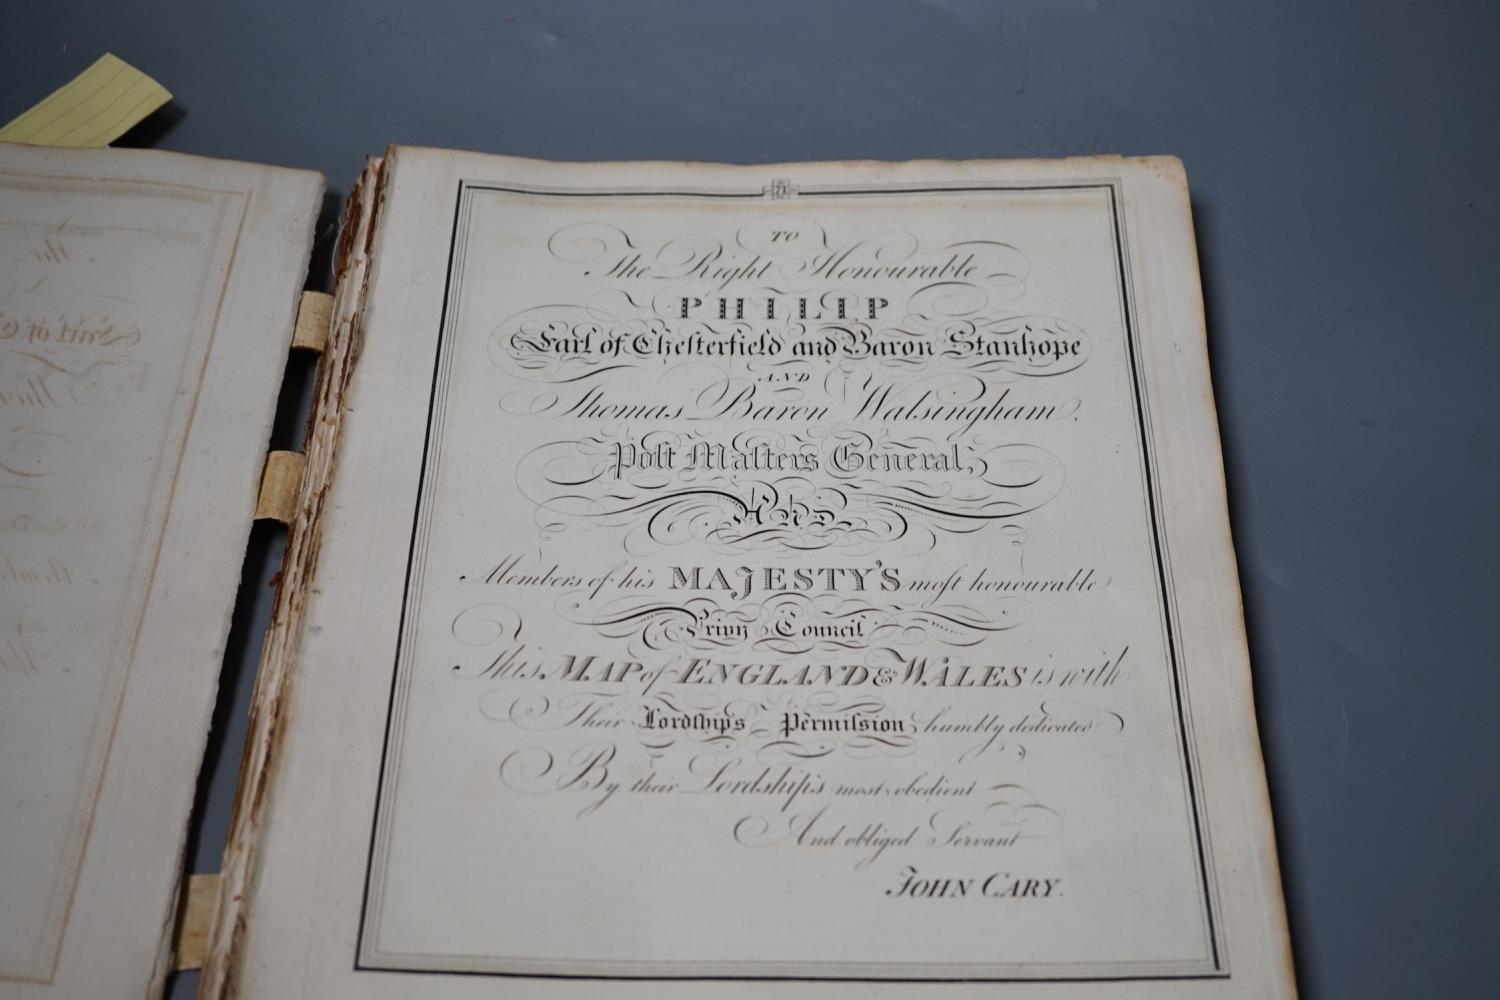 21
TO
The Right Honourable
PHILIP
Earl of Cheſterfield and Baron Stanhope
AND
Thomas Baron Walsingham.
Poſt Maſters General,
AND
Members of his MAJESTY'S moſt honourable
Privy Council
This MAP of ENGLAND & WALES is with
Their Lordſhips Permiſsion humbly dedicated
By their Lordship's most obedient
And obliged Servant
JOHN CARY.